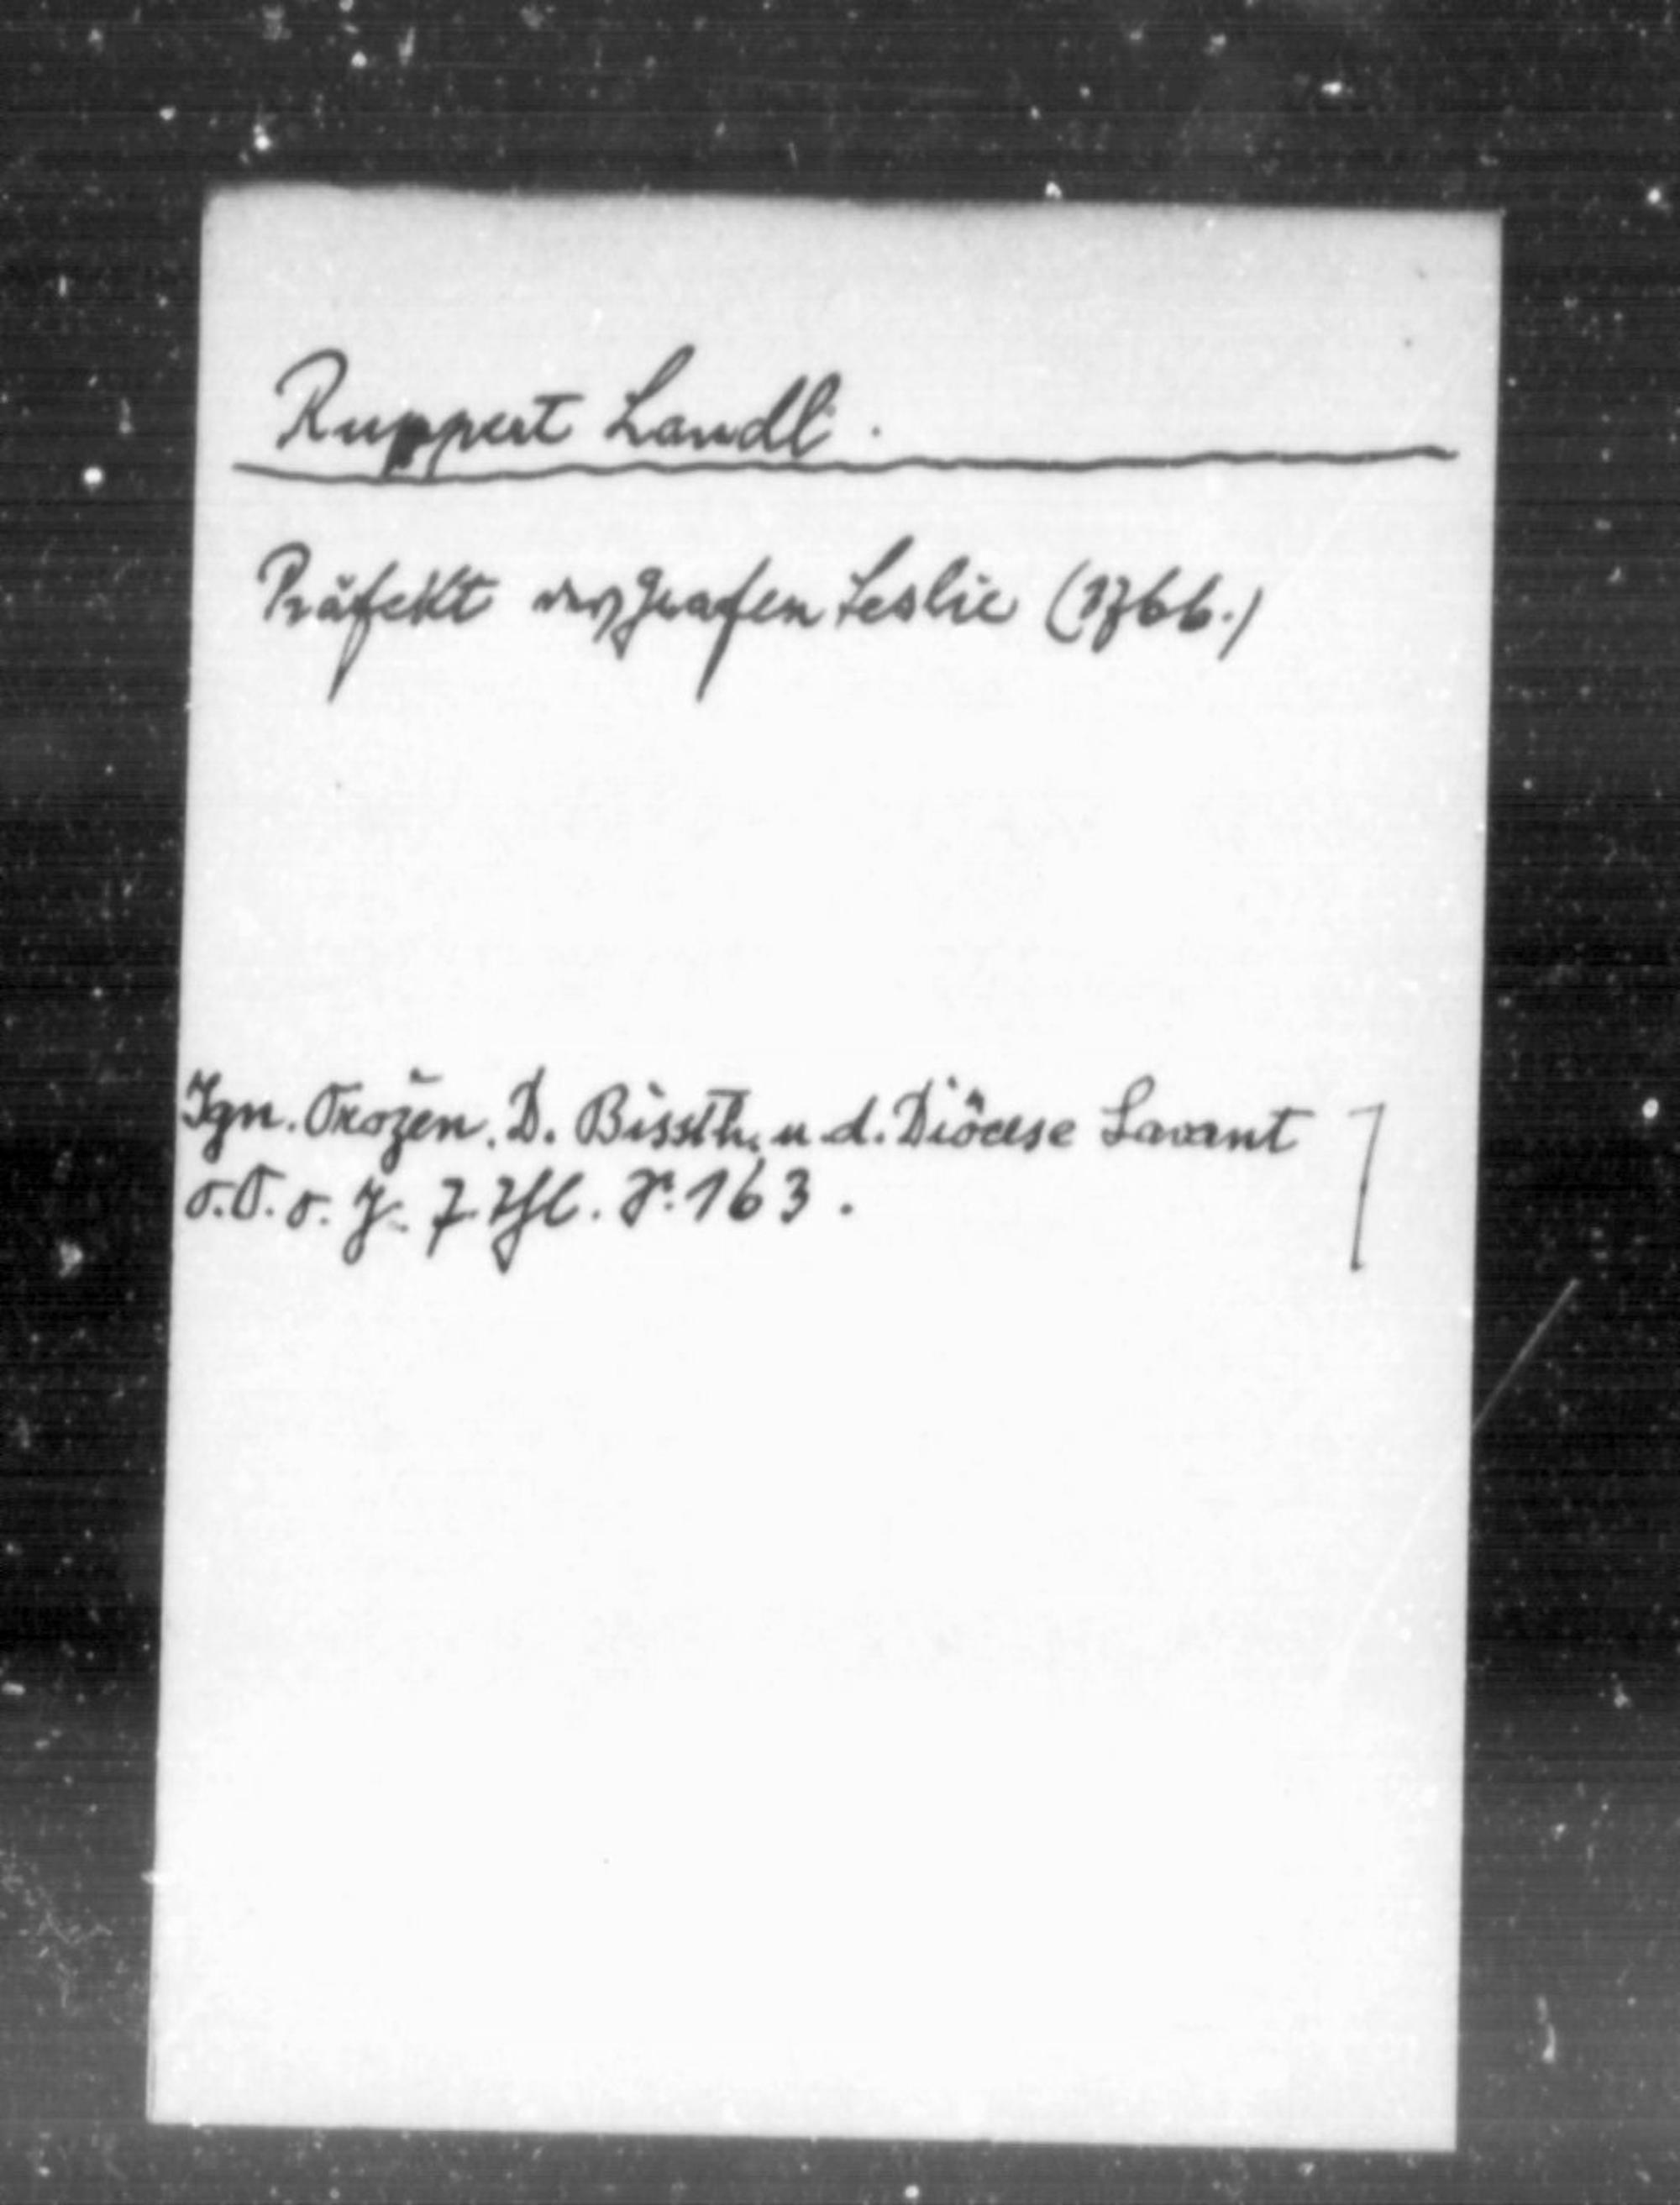 Ruppert Landl.
Präfekt des Grafen Leslie (1766.)
Ign. Orožen. D. Bissth. u. d. Diöcese Lavant
o. O. o. J. 7. Thl. S. 163.